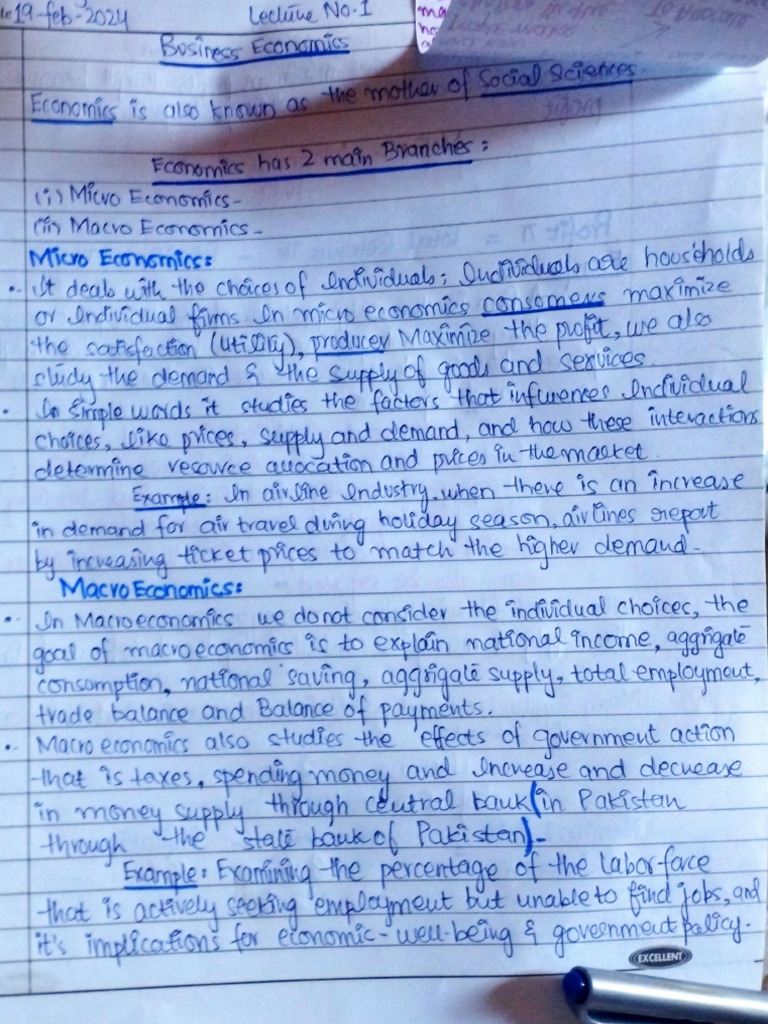 19-feb-2024 Lecture No.1
Business Economics
Economics is also known as the mother of Social Sciences.
Economics has 2 main Branches:
(i) Micro Economics-
(ii) Macro Economics-
Micro Economics:
It deals with the choices of Individuals; Individuals are households
or Individual firms In micro economics consomers maximize
the satisfaction (utility), producer Maximize the profit, we also
study the demand & the supply of goods and services.
In simple words it studies the factors that influences Individual
choices, like prices, supply and demand, and how these interactions
determine resource allocation and prices in the market.
Example: In airline Industry, when there is an increase
in demand for air travel during holiday season, airlines
by increasing ticket prices to match the higher demand-
Macro Economics:
In Macroeconomics we do not consider the individual choices, the
goal of macroeconomics is to explain national income, aggrigate
consumption, national saving, aggrigate supply, total employment,
trade balance and Balance of payments.
Macro economics also studies the effects of government action
that is taxes, spending money and Increase and decrease
in money supply through central bank (in Pakistan
through the state bank of Pakistan)-
Example: Examining the percentage of the labor force
that is actively seeking employment but unable to find jobs, and
it's implications for economic-well-being & government policy.
EXCELLENT